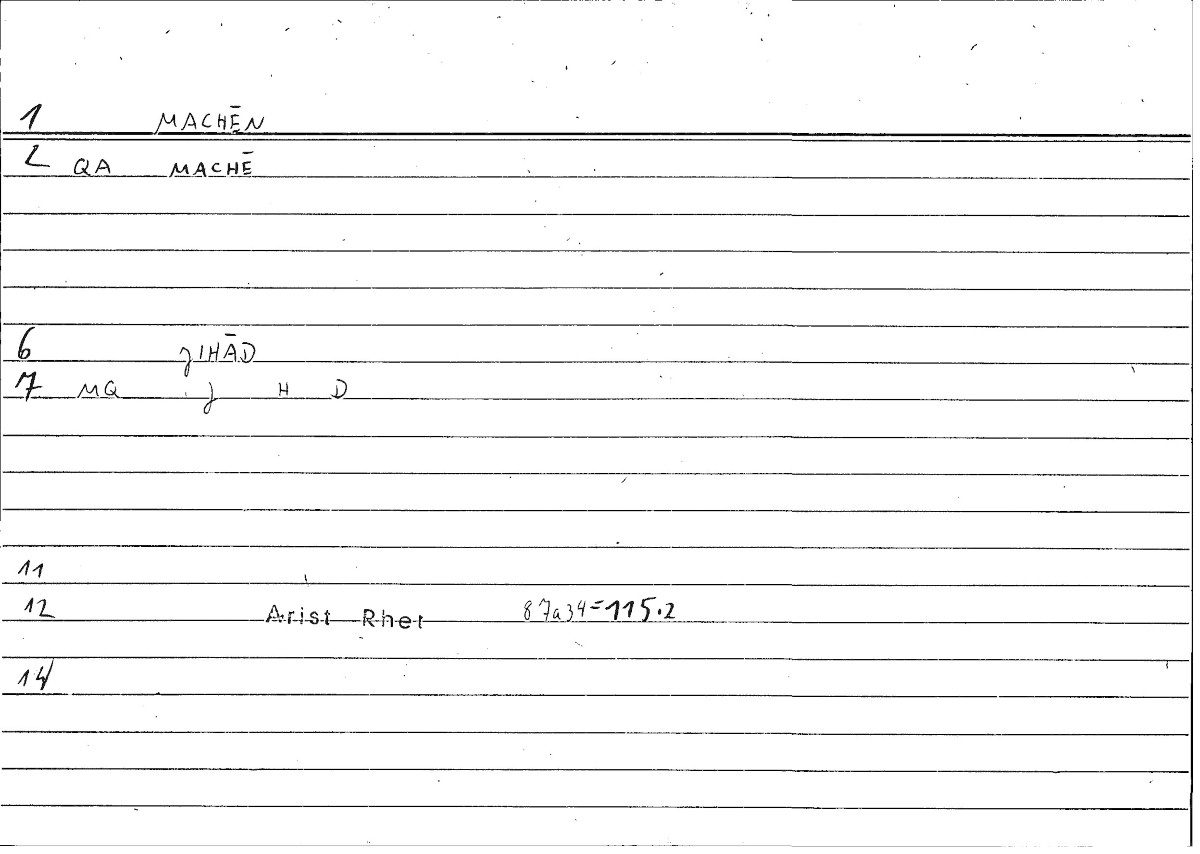 1 MACHĒN
2 QA MACHĒ
6 JIHĀD
7 MQ J H D
11
12 Arist Rhet 87a34=115.2
14